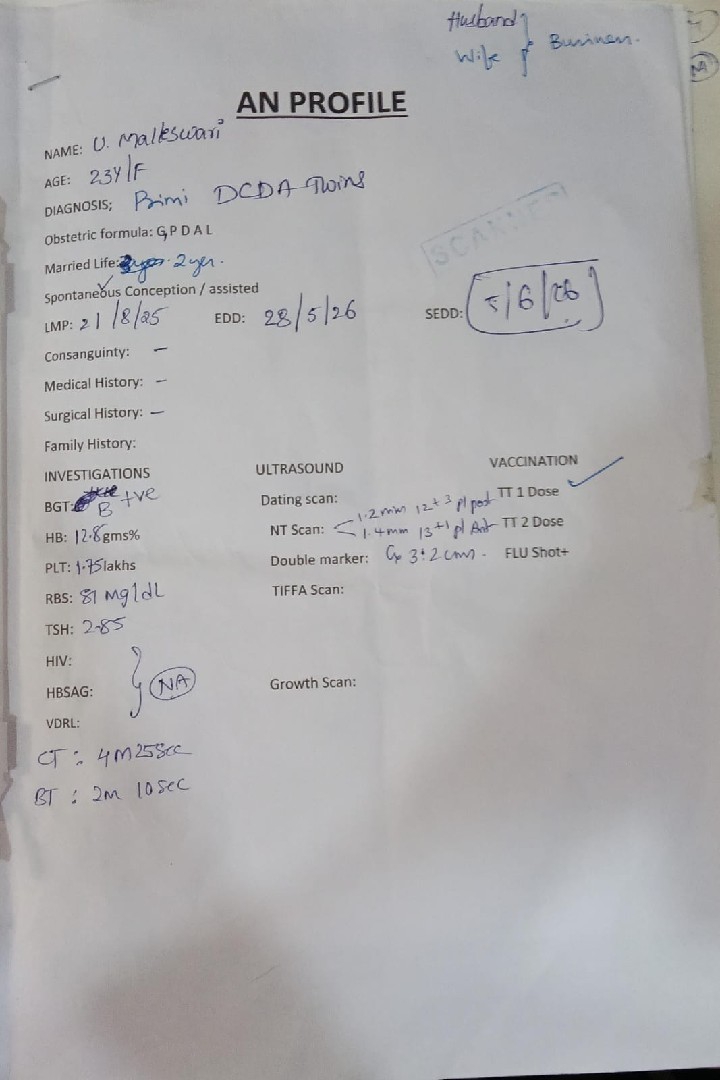 Husband
Wife } Business.
AN PROFILE
NAME: U. Malleswari
AGE: 23Y/F
DIAGNOSIS; Primi DCDA Twins
Obstetric formula: G P D A L
SCANNED
Married Life: 2yer.
Spontaneous Conception / assisted
LMP: 21/8/25 EDD: 28/5/26 SEDD: 5/6/26
Consanguinty: -
Medical History: -
Surgical History: -
Family History:
INVESTIGATIONS ULTRASOUND VACCINATION
BGT: B +ve Dating scan: TT 1 Dose ✓
HB: 12.8 gms% NT Scan: 1.2mm 12+3 pl post TT 2 Dose
1.4mm 13+1 pl Ant
PLT: 1.75 lakhs Double marker: Cx 3.2 cms. FLU Shot+
RBS: 81 mg/dL TIFFA Scan:
TSH: 2.85
HIV:
HBSAG: NA Growth Scan:
VDRL:
CT : 4M25Sec
BT : 2m 10sec